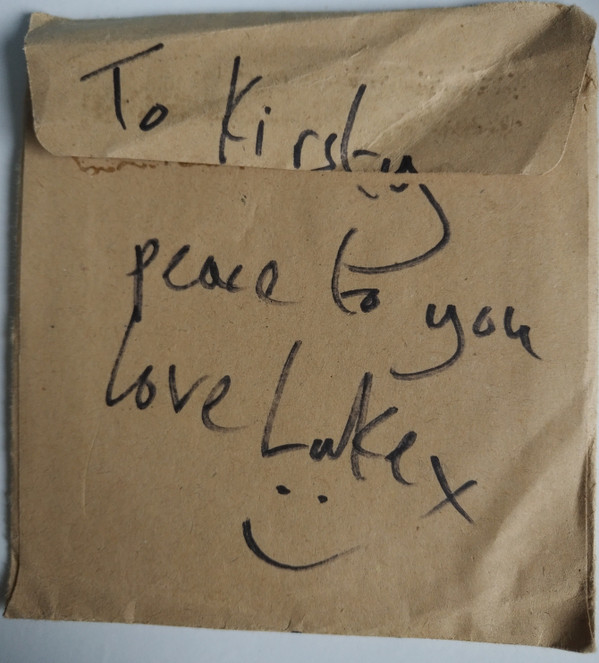 To Kirsty
peace to you
love Luke x